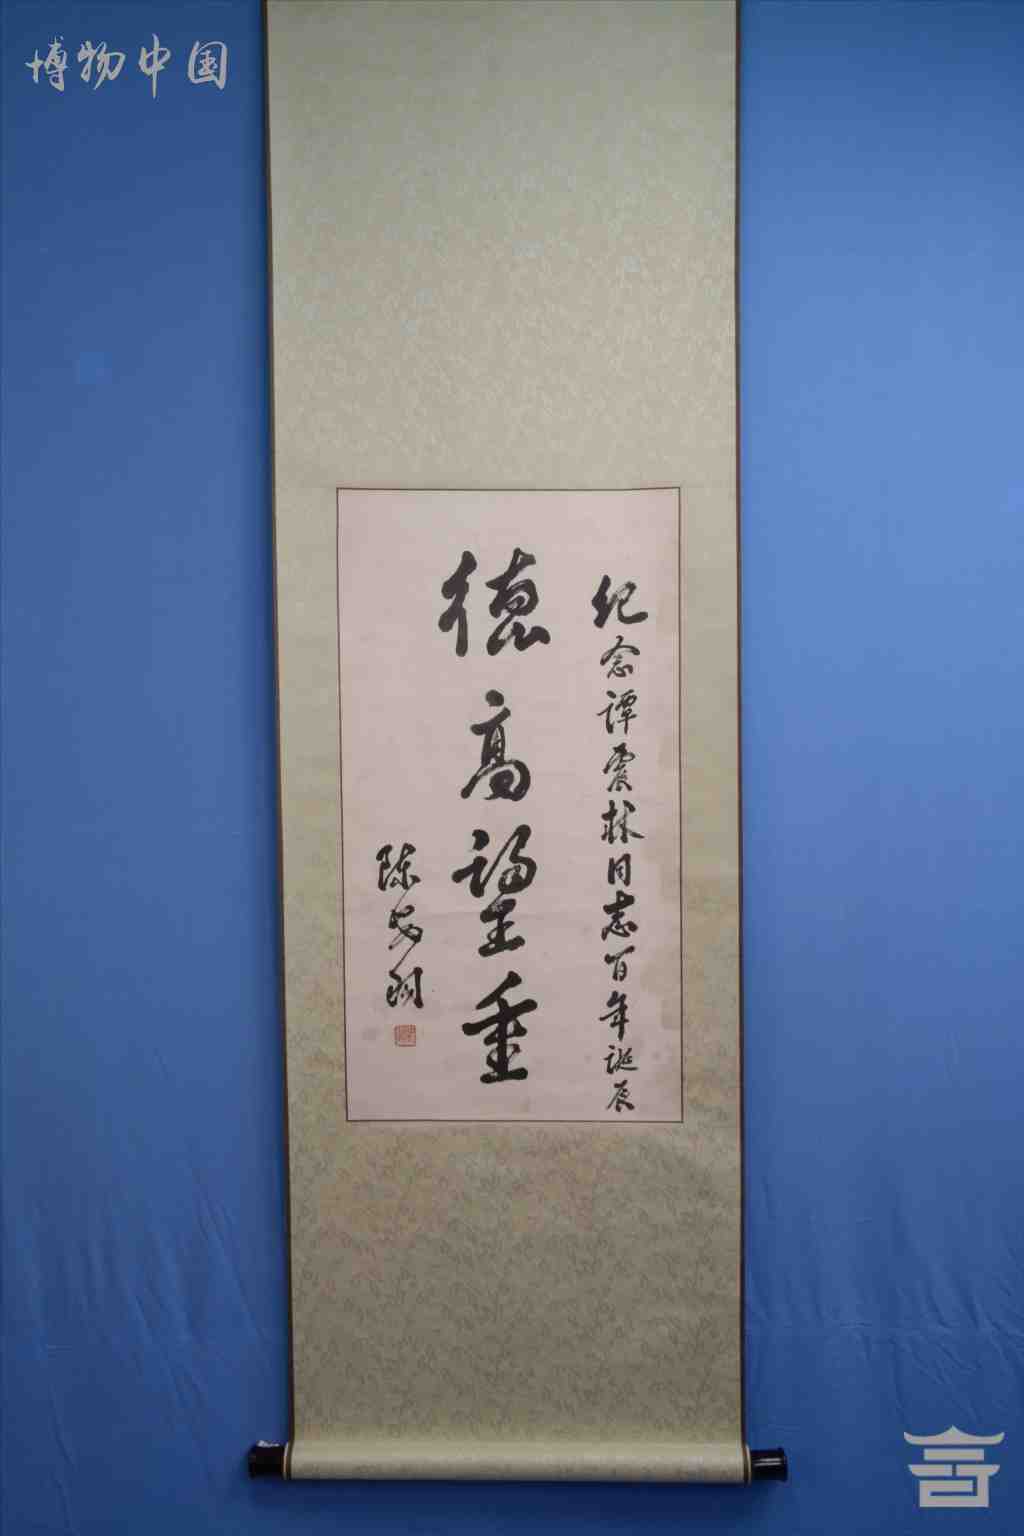 博物中国
纪念谭震林同志百年诞辰
德高望重
陈安羽